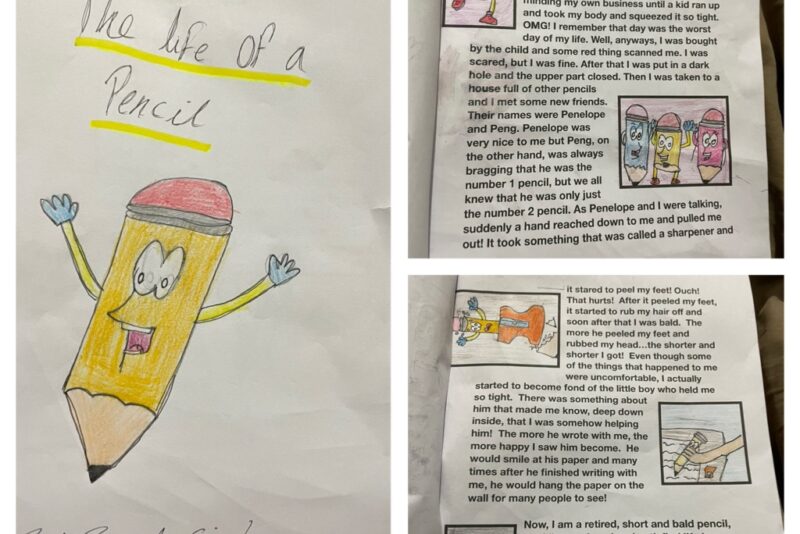 The life of a
Pencil
minding my own business until a kid ran up
and took my body and squeezed it so tight.
OMG! I remember that day was the worst
day of my life. Well, anyways, I was bought
by the child and some red thing scanned me. I was
scared, but I was fine. After that I was put in a dark
hole and the upper part closed. Then I was taken to a
house full of other pencils
and I met some new friends.
Their names were Penelope
and Peng. Penelope was
very nice to me but Peng, on
the other hand, was always
bragging that he was the
number 1 pencil, but we all
knew that he was only just
the number 2 pencil. As Penelope and I were talking,
suddenly a hand reached down to me and pulled me
out! It took something that was called a sharpener and
it stared to peel my feet! Ouch!
That hurts! After it peeled my feet,
it started to rub my hair off and
soon after that I was bald. The
more he peeled my feet and
rubbed my head...the shorter and
shorter I got! Even though some
of the things that happened to me
were uncomfortable, I actually
started to become fond of the little boy who held me
so tight. There was something about
him that made me know, deep down
inside, that I was somehow helping
him! The more he wrote with me, the
more happy I saw him become. He
would smile at his paper and many
times after he finished writing with
me, he would hang the paper on the
wall for many people to see!
Now, I am a retired, short and bald pencil,